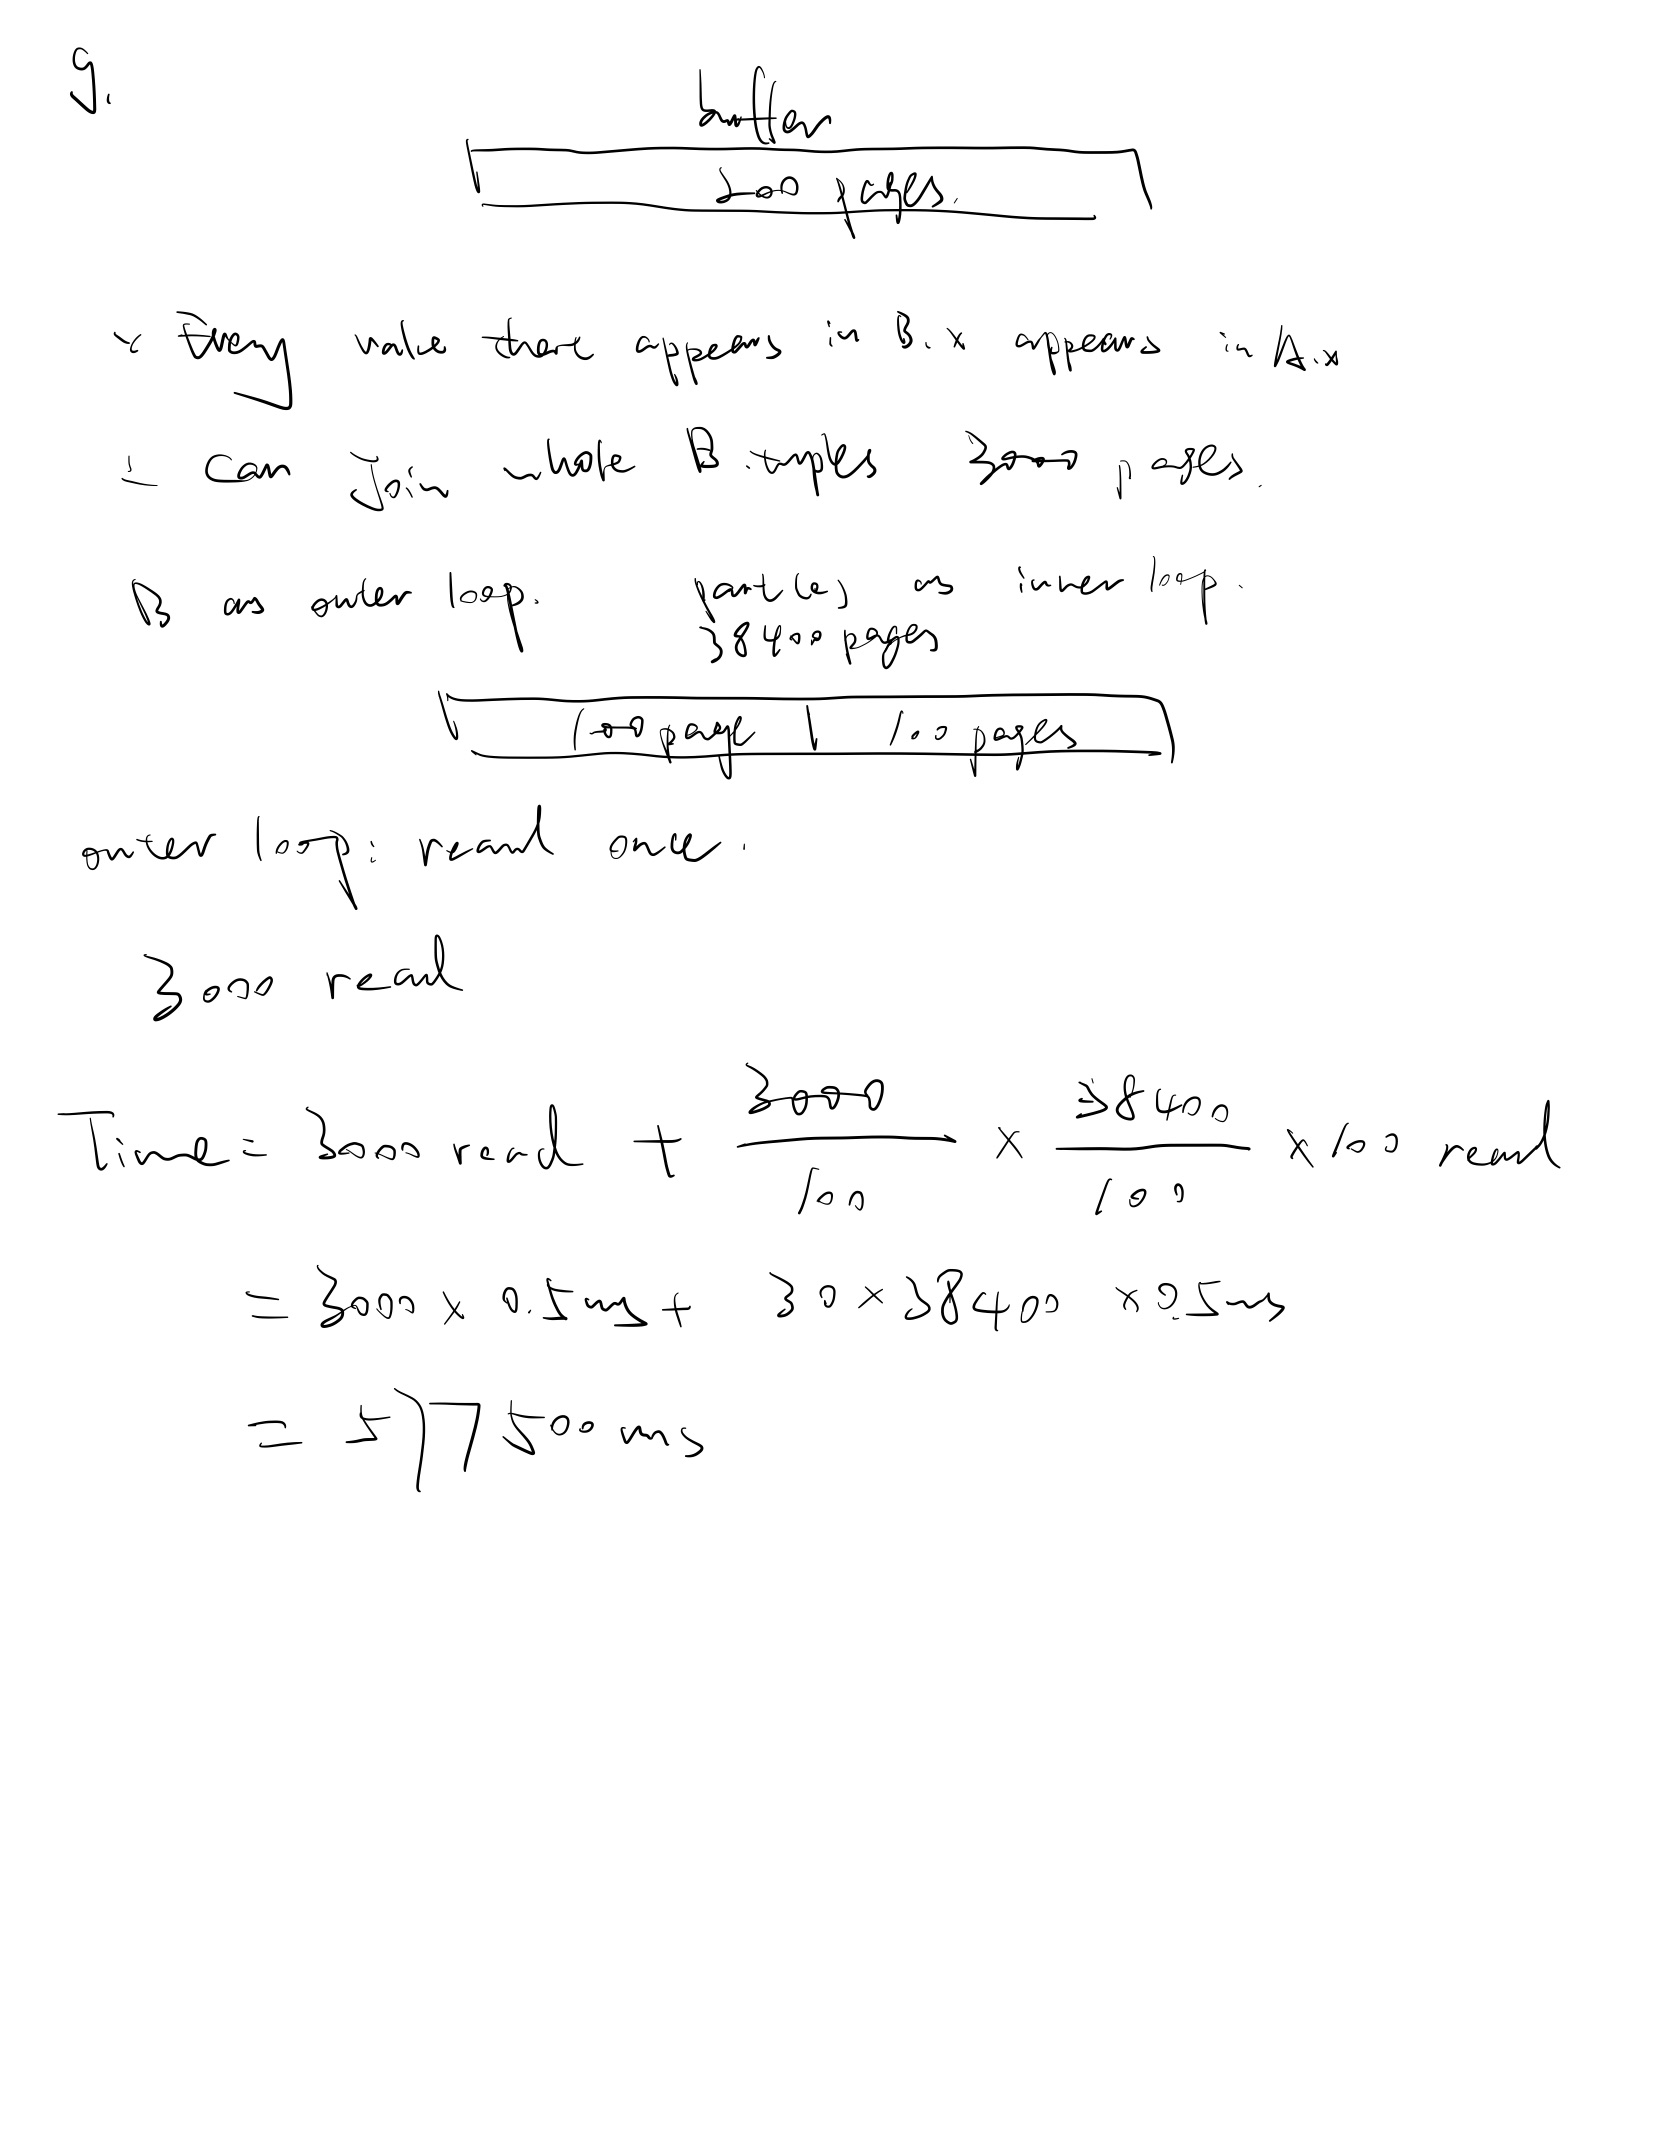 g.
buffer
200 pages.
∵ Every value there appears in B.x appears in A.x
∴ can Join whole B.tuples 3000 pages.
B as outer loop. part(e) as inner loop.
38400 pages
100 page | 100 pages
outer loop: read once.
3000 read
Time = 3000 read + 3000/100 × 38400/100 × 100 read
= 3000 × 0.5ms + 30 × 38400 × 0.5ms
= 577500 ms